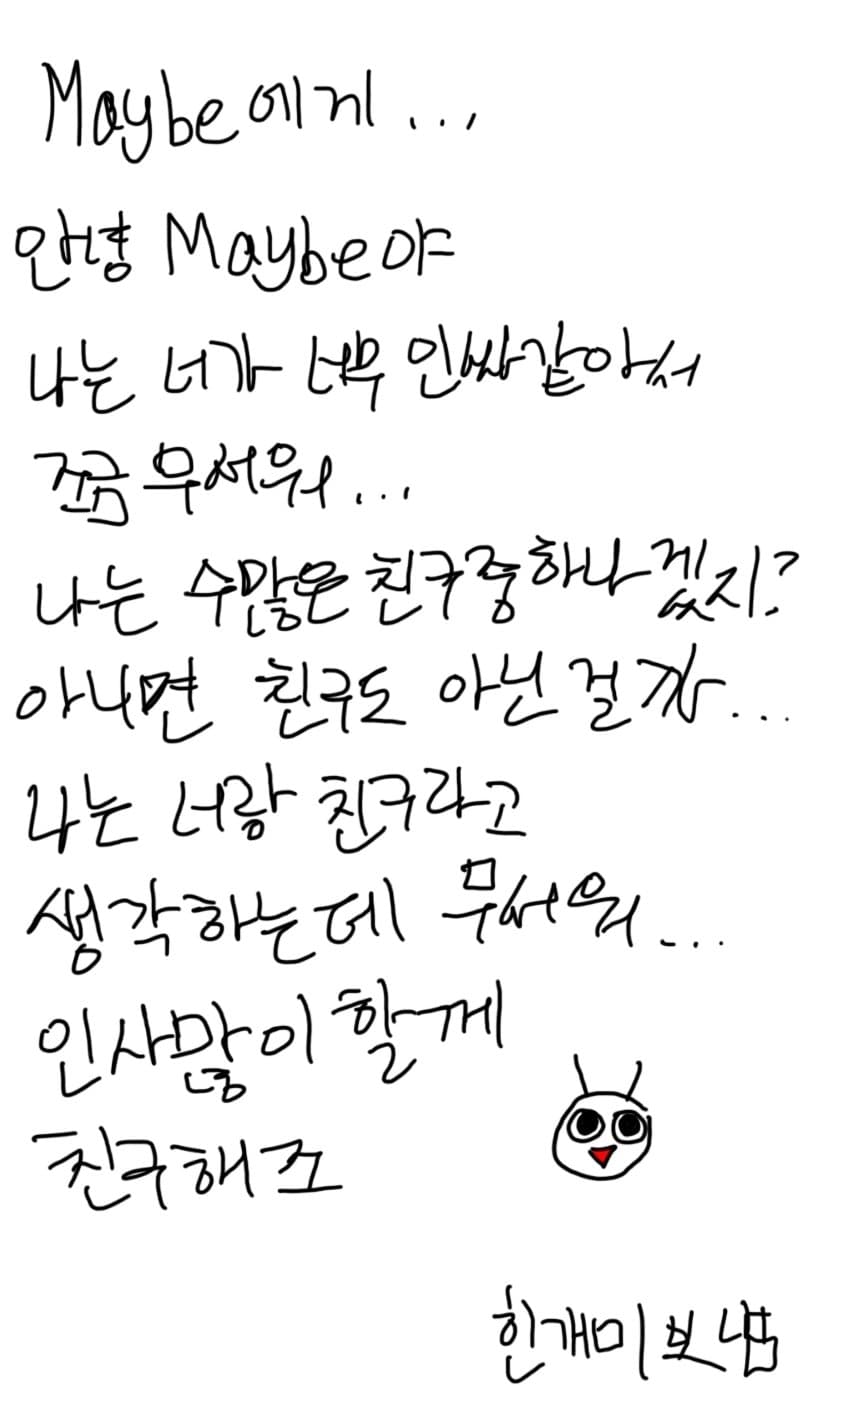 Maybe에게...
안녕 Maybe야
나는 너가 너무 인싸같아서
쪼금 무서워...
나는 수많은 친구중 하나겠지?
아니면 친구도 아닌걸까...
나는 너랑 친구라고
생각하는데 무서워...
인사많이 할께
친구해죠
한개미 보냄